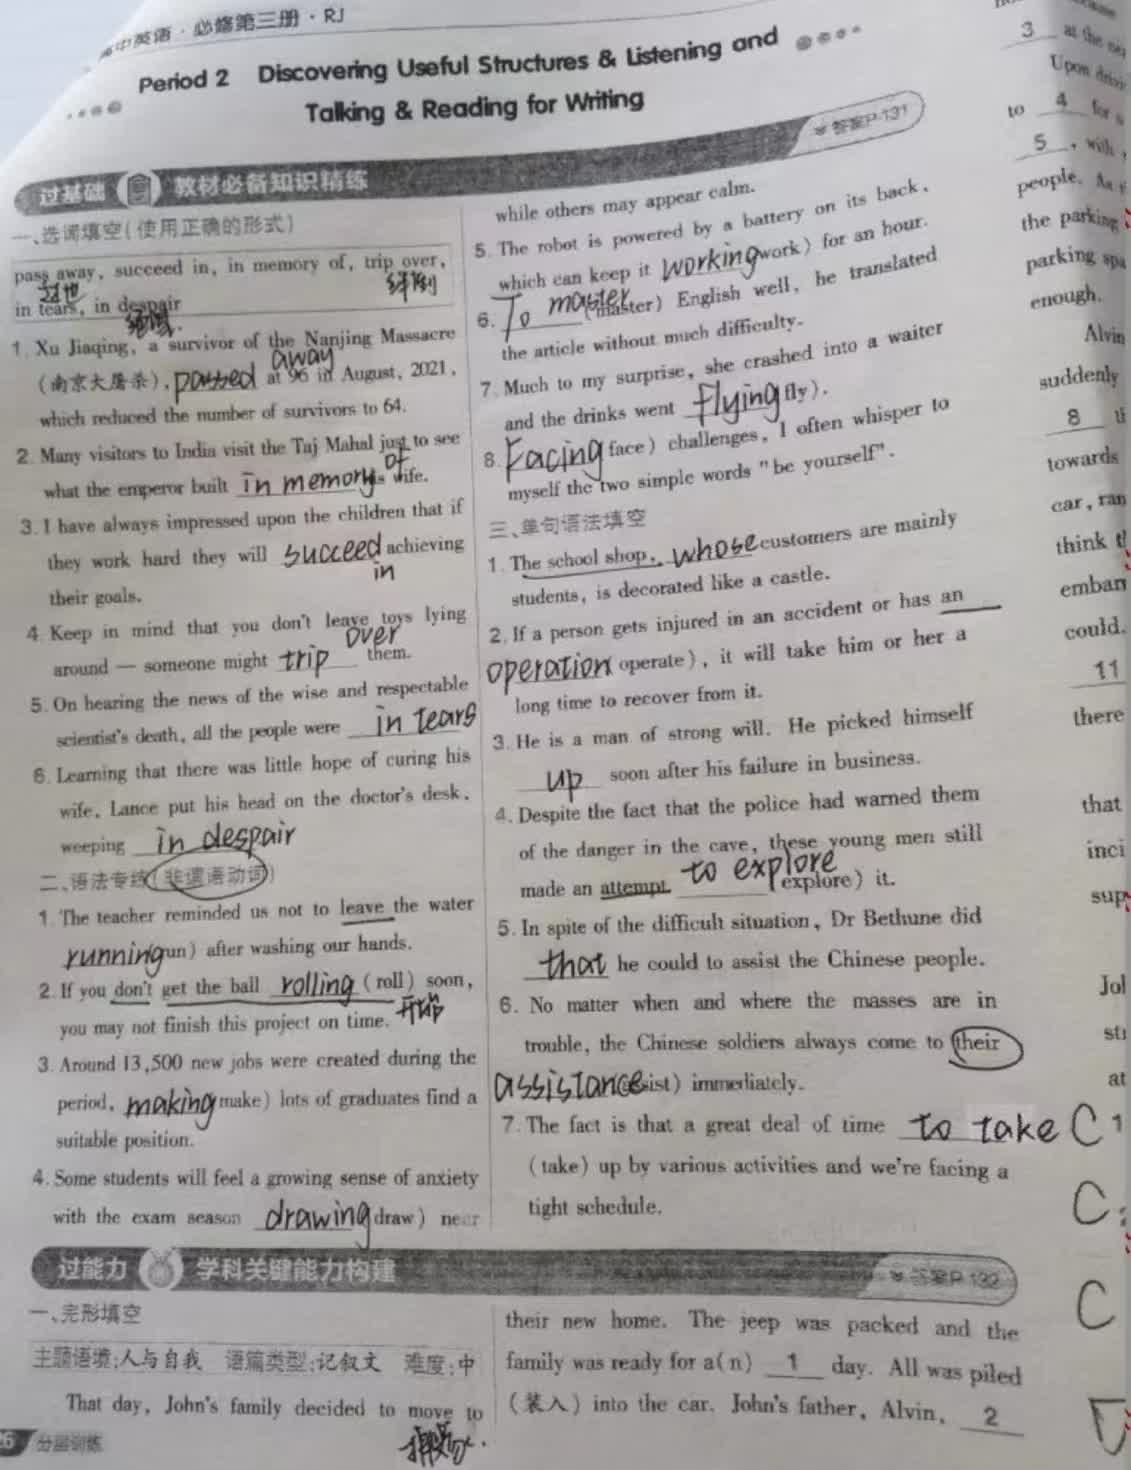 高中英语·必修第三册·RJ
Period 2 Discovering Useful Structures & Listening and
Talking & Reading for Writing
答案P·131
过基础 教材必备知识精练
一、选词填空(使用正确的形式)
pass away, succeed in, in memory of, trip over,
过世 绊倒
in tears, in despair
绝望.
1. Xu Jiaqing, a survivor of the Nanjing Massacre
away
(南京大屠杀), passed at 96 in August, 2021,
which reduced the number of survivors to 64.
2. Many visitors to India visit the Taj Mahal just to see
what the emperor built in memory of his wife.
3. I have always impressed upon the children that if
they work hard they will succeed achieving
in
their goals.
4. Keep in mind that you don't leave toys lying
over
around — someone might trip them.
5. On hearing the news of the wise and respectable
scientist's death, all the people were in tears
6. Learning that there was little hope of curing his
wife, Lance put his head on the doctor's desk,
weeping in despair
二、语法专练(非谓语动词)
1. The teacher reminded us not to leave the water
running(run) after washing our hands.
2. If you don't get the ball rolling (roll) soon,
you may not finish this project on time.
3. Around 13,500 new jobs were created during the
period, making(make) lots of graduates find a
suitable position.
4. Some students will feel a growing sense of anxiety
with the exam season drawing(draw) near
while others may appear calm.
5. The robot is powered by a battery on its back,
which can keep it working(work) for an hour.
6. To master (master) English well, he translated
the article without much difficulty.
7. Much to my surprise, she crashed into a waiter
and the drinks went flying(fly).
8. Facing(face) challenges, I often whisper to
myself the two simple words "be yourself".
三、单句语法填空
1. The school shop, whose customers are mainly
students, is decorated like a castle.
2. If a person gets injured in an accident or has an
operation(operate), it will take him or her a
long time to recover from it.
3. He is a man of strong will. He picked himself
up soon after his failure in business.
4. Despite the fact that the police had warned them
of the danger in the cave, these young men still
made an attempt to explore (explore) it.
5. In spite of the difficult situation, Dr Bethune did
that he could to assist the Chinese people.
6. No matter when and where the masses are in
trouble, the Chinese soldiers always come to their
assistance(assist) immediately.
7. The fact is that a great deal of time to take
(take) up by various activities and we're facing a
tight schedule.
过能力 学科关键能力构建
答案P·132
一、完形填空
主题语境:人与自我 语篇类型:记叙文 难度:中
That day, John's family decided to move to
their new home. The jeep was packed and the
family was ready for a(n) 1 day. All was piled
(装入) into the car. John's father, Alvin, 2
26 分层训练
3 at the
Upon
to 4 for
5, with
people. As
the parking
parking spa
enough.
Alvin
suddenly
8
towards
car, ran
think
embar
could.
11
there
that
inci
sup
Jol
at
C 1
C
C